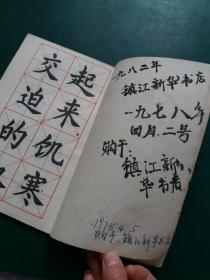 起来,饥寒
交迫的
一九八二年
镇江新华书店
一九七八年
四月二号
购于:
镇江新
华书店
1978.4.5
购于:镇江新华书店